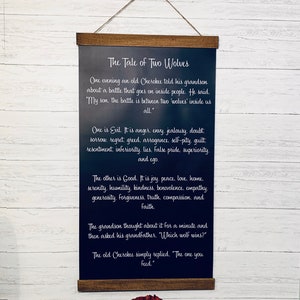 The Tale of Two Wolves
One evening an old Cherokee told his grandson
about a battle that goes on inside people. He said,
"My son, the battle is between two 'wolves' inside us
all."
One is Evil. It is anger, envy, jealousy, doubt,
sorrow, regret, greed, arrogance, self-pity, guilt,
resentment, inferiority, lies, false pride, superiority
and ego.
The other is Good. It is joy, peace, love, hope,
serenity, humility, kindness, benevolence, empathy,
generosity, forgiveness, truth, compassion, and
faith.
The grandson thought about it for a minute and
then asked his grandfather, "Which wolf wins?"
The old Cherokee simply replied, "The one you
feed."